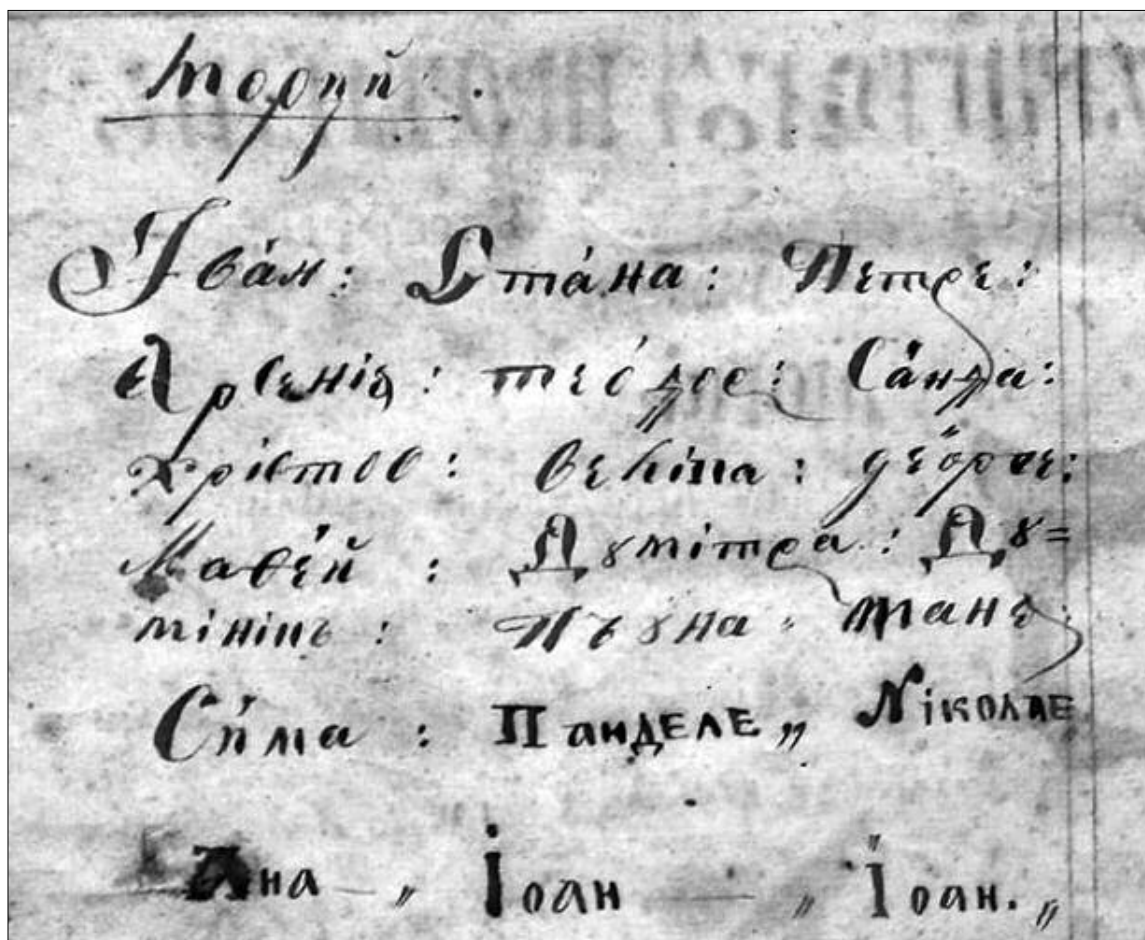 Морцй.
Івáн: Стáна: Петре:
Арсеніѧ: теóдос: Сáнда:
Хрістос: Веліпа: џеóрџе:
Мавéй: Дꙋмітра: Дꙋ=
мініпъ: Пъꙋна: тане
Си́ма: Панделе „ Ніколае
Ана „ Іоан „ Іоан. „